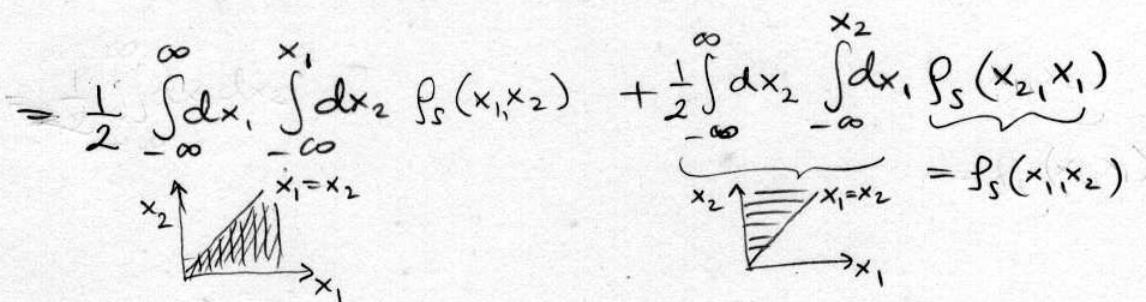 = 1/2 ∫_{-∞}^{∞} dx₁ ∫_{-∞}^{x₁} dx₂ ρ_s(x₁,x₂) + 1/2 ∫_{-∞}^{∞} dx₂ ∫_{-∞}^{x₂} dx₁ ρ_s(x₂,x₁)
= ρ_s(x₁,x₂)
x₂ x₁=x₂ x₁
x₂ x₁=x₂ x₁